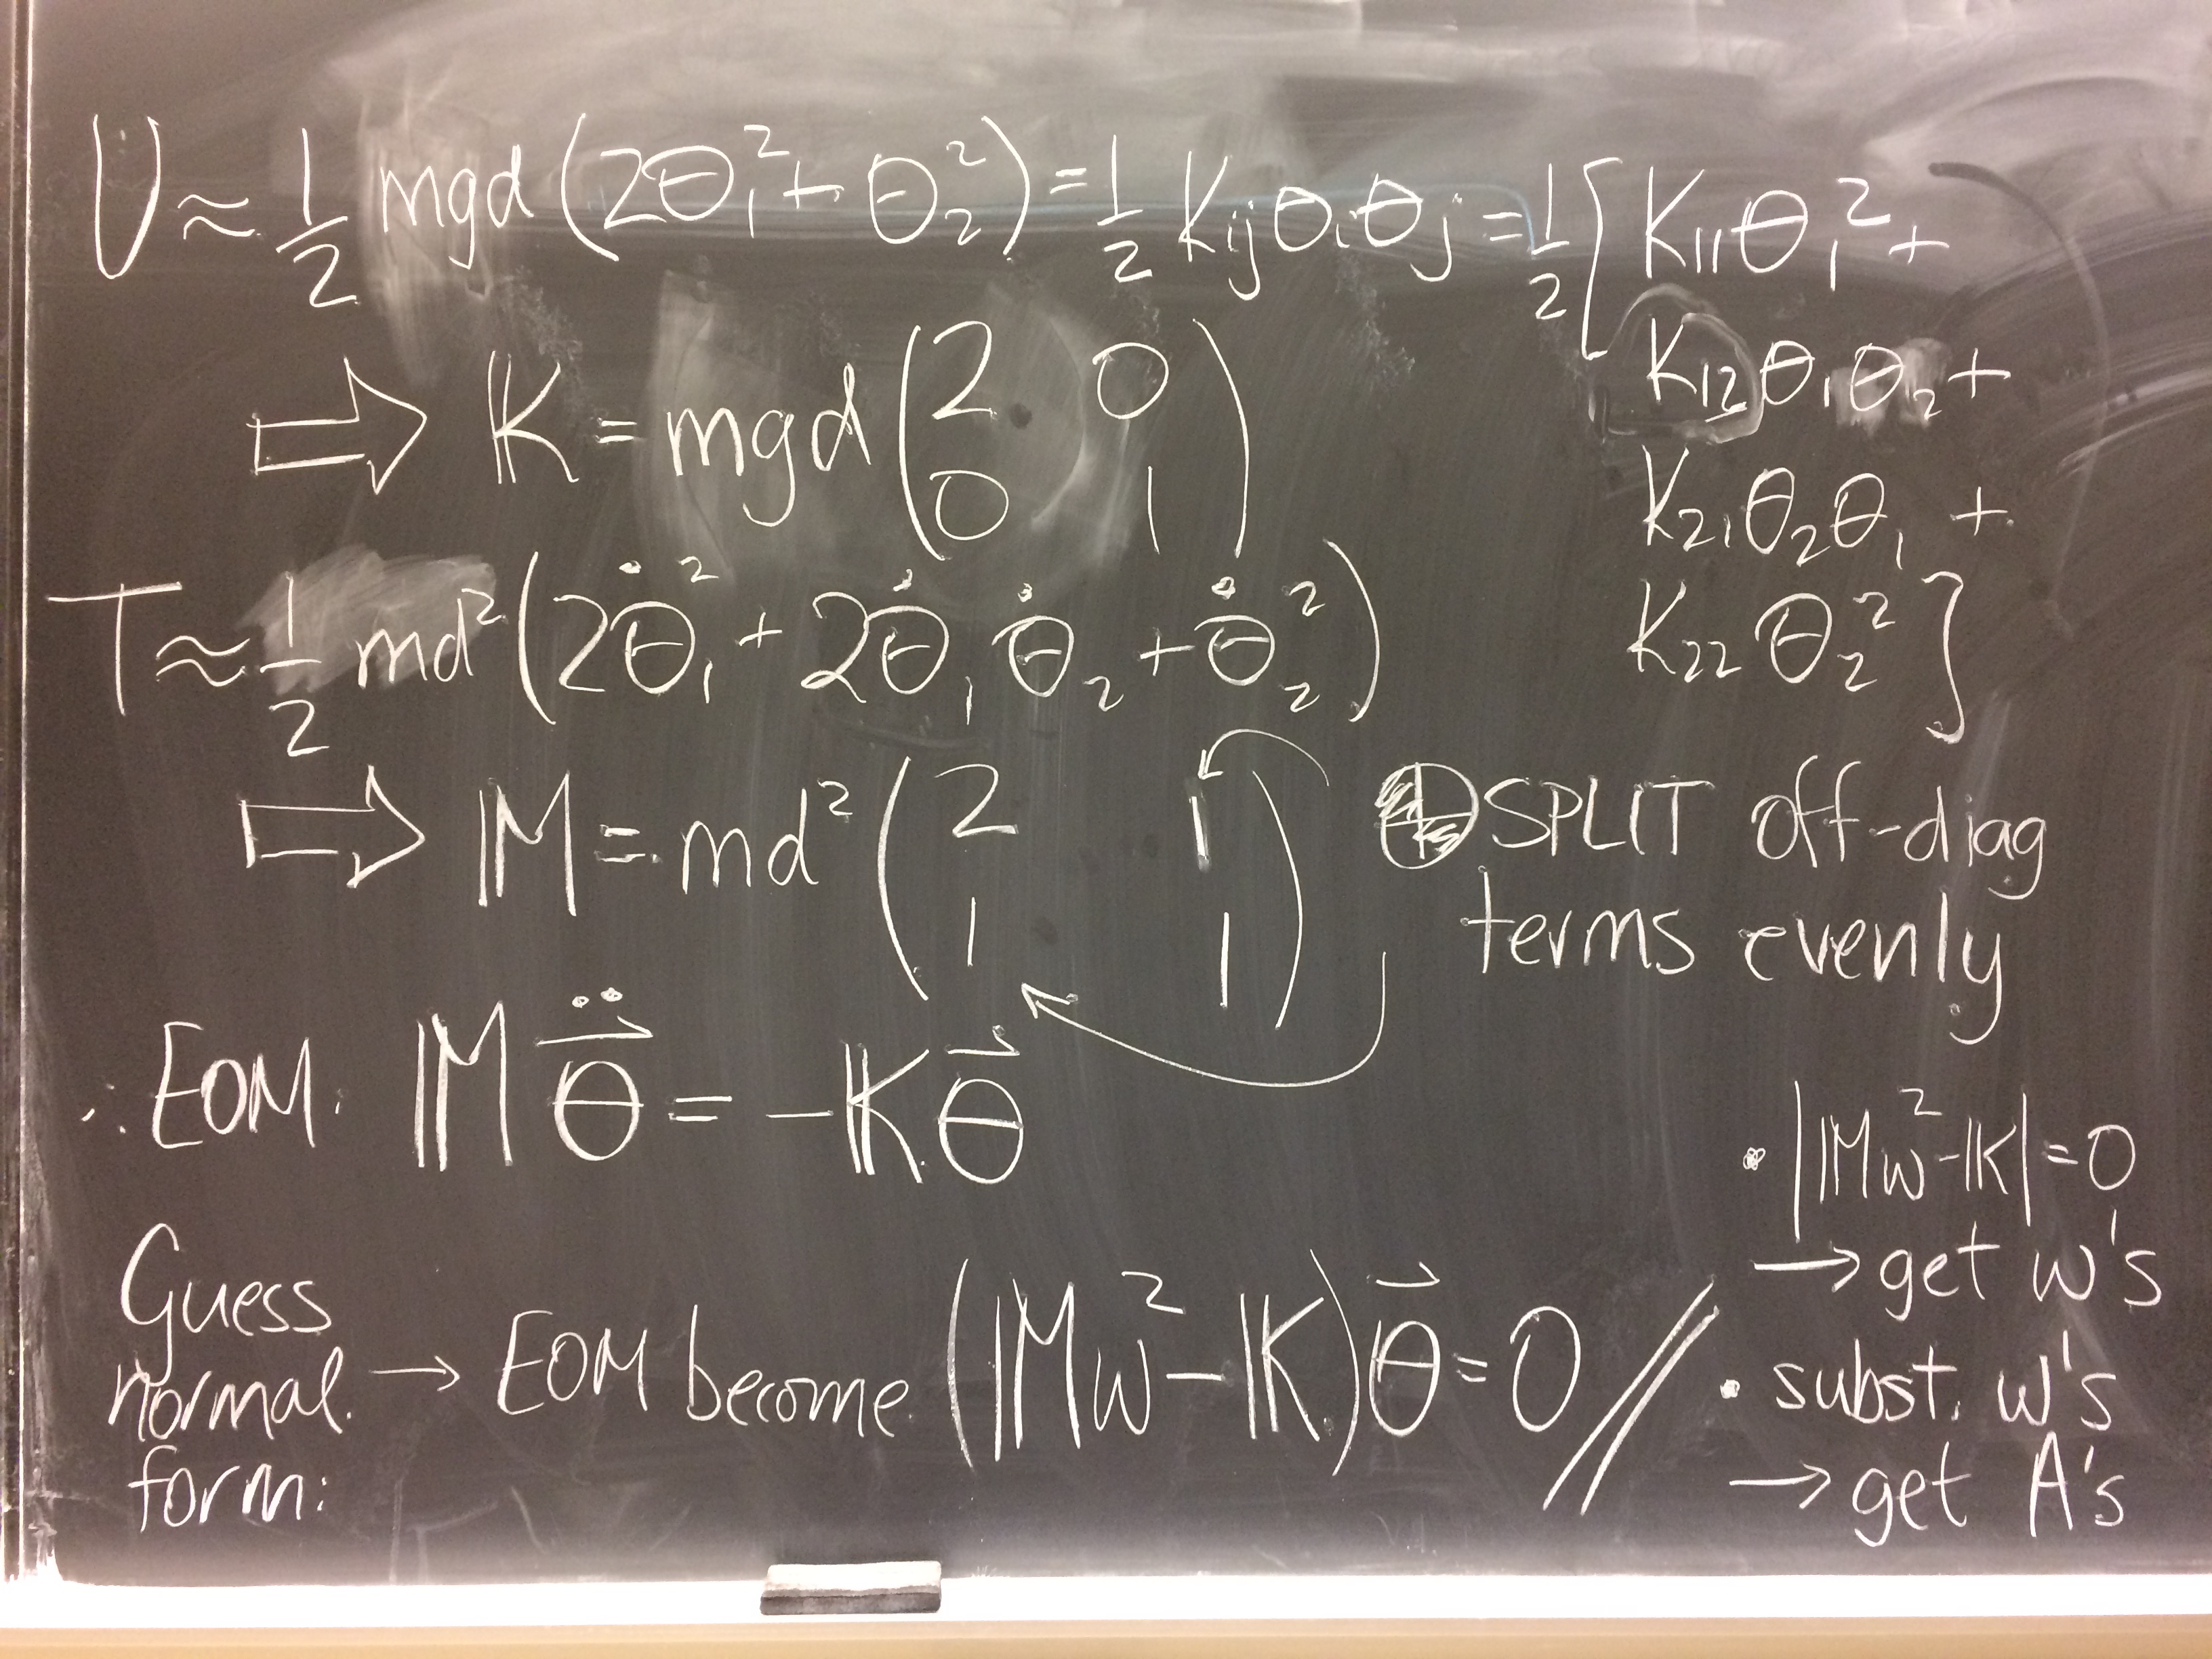 U ≈ 1/2 mgd (2θ₁² + θ₂²) = 1/2 Kijθiθj = 1/2 [K₁₁θ₁² +
K₁₂θ₁θ₂ +
K₂₁θ₂θ₁ +
K₂₂θ₂²]
⇒ 𝕂 = mgd (2 0
0 1)
T ≈ 1/2 md² (2θ̇₁² + 2θ̇₁θ̇₂ + θ̇₂²)
⇒ 𝕄 = md² (2 1
1 1)
⊕ SPLIT off-diag
terms evenly
∴ EOM: 𝕄 θ⃗̈ = -𝕂 θ⃗
Guess
normal
form:
→ EOM become (𝕄ω² - 𝕂) θ⃗ = 0 //
• |𝕄ω² - 𝕂| = 0
→ get ω's
• subst. ω's
→ get A's